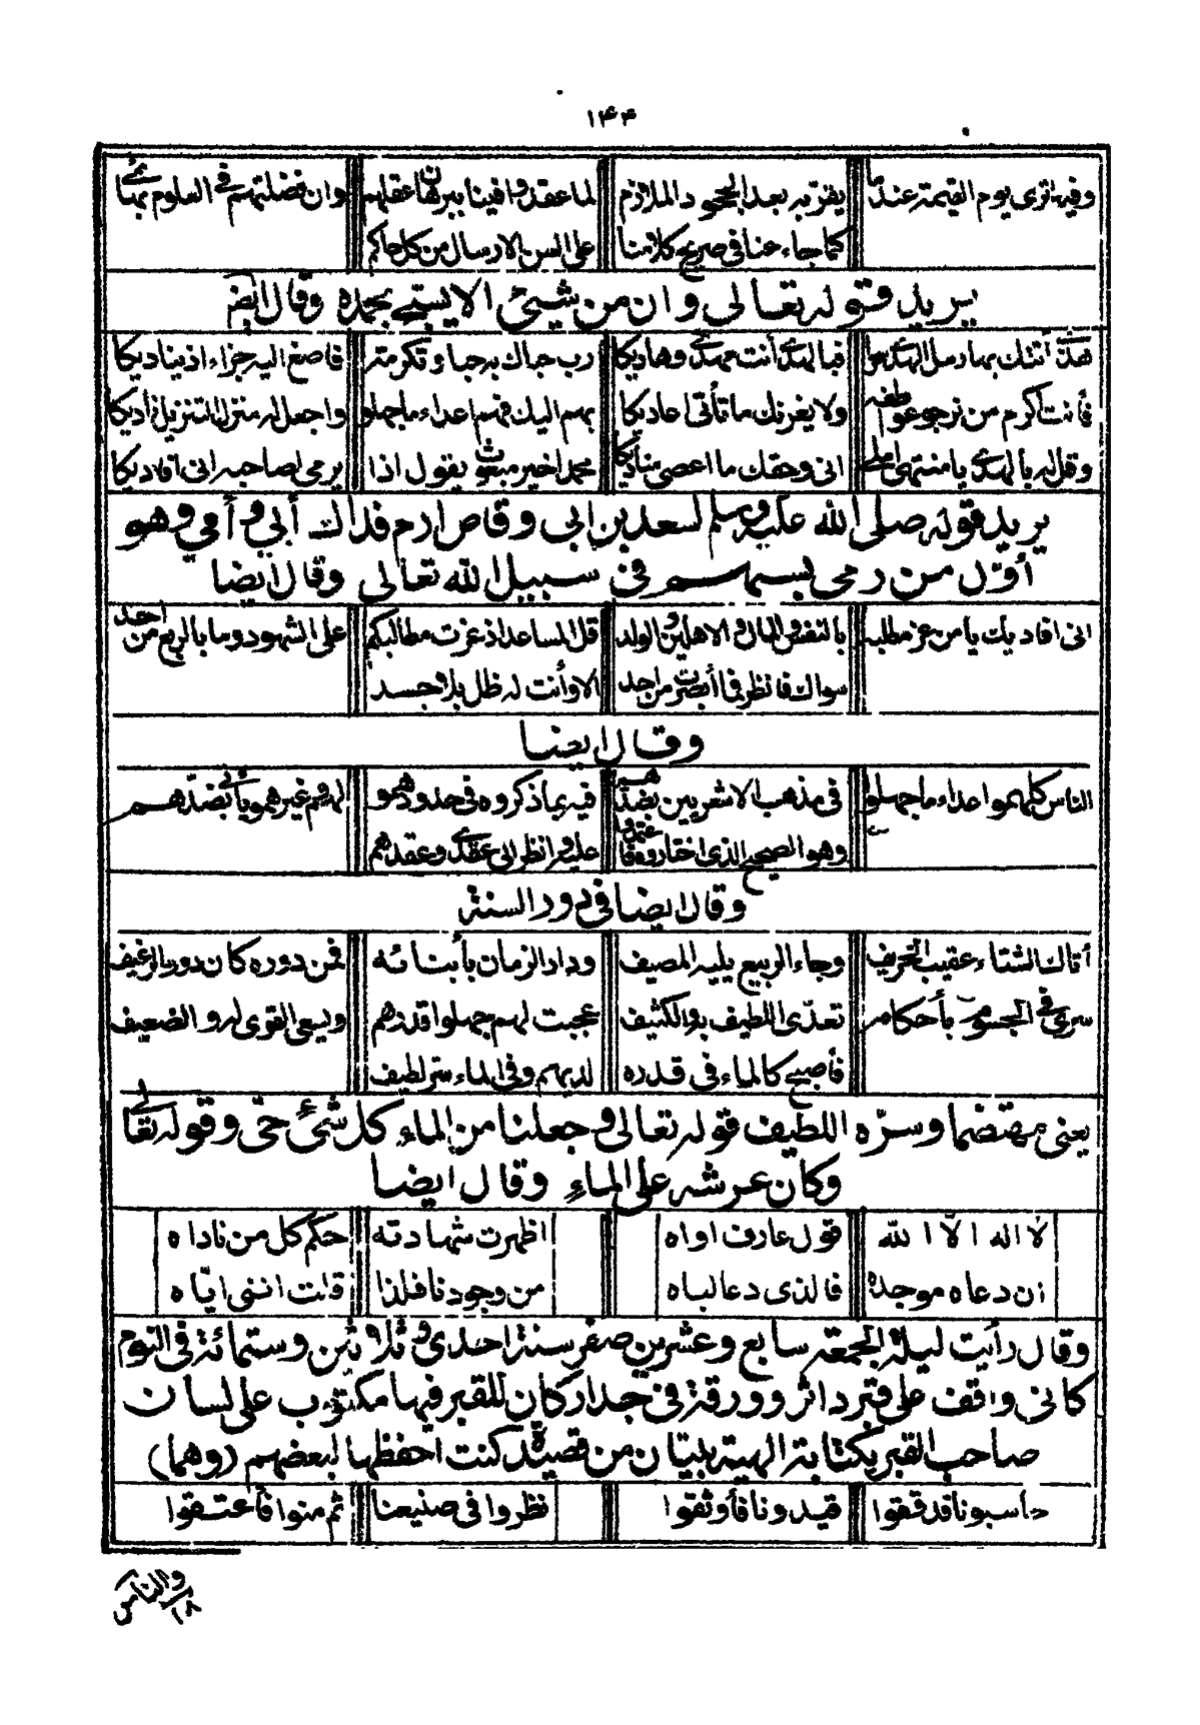 ۱۴۴
وفيها ترى يوم القيمة عندنا يقرّبه بعد الجحود الملازم لما عقدوا فينا ببرهان عقلهم وان فضلتهم في العلوم بهائم
كما جاء عنا في صريح كلامنا على السن الارسال من كل حاكم
يريد قوله تعالى وان من شيئ الا يسبّح بحمده وقال ايضا
هذى أتتك بها رسل الهدى فبالهدى أنت مهدى وهاديكا رب حباك به حبا وتكرمة فاصغ اليه جزاء اذ يناديكا
فأنت أكرم من نرجو ولا يغرنك ما تأتى اعاديكا بهم اليك فهم اعداء ما جهلوا واجعل له منزل التنزيل ناديكا
وقل له بالهدى يا منتهى املى انى وحقك ما اعصى مناديكا محمد اخير مبعوث يقول اذا يرمى لصاحبه انى افاديكا
يريد قوله صلى الله عليه وسلم لسعد بن ابى وقاص ارم فداك أبي وأمي وهو
أوّل من رمى بسهم في سبيل الله تعالى وقال ايضا
انى افاديك يا من عز مطلبه بالنفس والمال والاهلين والولد قل المساعد اذ عزت مطالبكم على الشهود وما بالربع من احد
سواك فانظر فما أبصرت من احد الا وأنت له ظل بلا جسد
وقال ايضا
الناس كلهمو اعداء ما جهلوا في مذهب الاشعريين بضدّهم فيه بما ذكروه في حدودهمو لهم وغيرهمو يأتي بضدّهم
وهو الصحيح الذى اختاروه فاعتمدوا عليه وانظر الى عقدى وعقدهم
وقال ايضا في دور السنة
أتاك الشتاء عقيب الخريف وجاء الربيع يليه المصيف ودار الزمان بأبنائه فمن دوره كان دور الرغيف
سرى في الجسوم بأحكامه تغذّى اللطيف به والكثيف عجبت لهم جهلوا قدرهم ويسعى القوى له والضعيف
فأصبح كالماء في قدره لديهم وفي الماء سر لطيف
يعنى مهتضما وسرّه اللطيف قوله تعالى وجعلنا من الماء كل شئ حىّ وقوله تعالى
وكان عرشه على الماء وقال ايضا
لا اله الا الله قول عارف اواه اظهرت شهادته حكم كل من ناداه
ان دعاه موجده فالذى دعا لباه من وجودنا فلذا قلت اننى ايّاه
وقال رأيت ليلة الجمعة سابع وعشرين صفر سنة احدى وثلاثين وستمائة في النوم
كانى واقف على قبر داثر وورقة في جدار كان للقبر فيها مكتوب على لسان
صاحب القبر بكتابة الهية بيتان من قصيدة كنت احفظها لبعضهم (وهما)
حاسبونا فدققوا قيدونا فأوثقوا نظروا في صنيعنا ثم منوا فأعتقوا
والناس
١٨